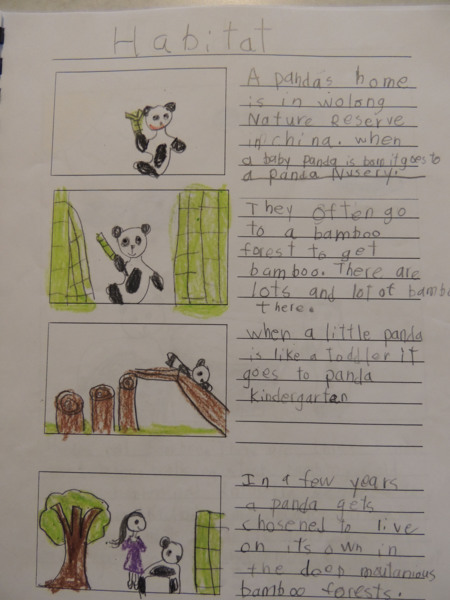 Habitat
A panda's home
is in wolong
Nature Reserve
in China. when
a baby panda is born it goes to
a panda Nusery.
They often go
to a bamboo
forest to get
bamboo. There are
lots and lot of bambo
there.
when a little panda
is like a Toddler It
goes to panda
kindergarten
In a few years
a panda gets
chosened to live
on it's own in
the deep moutanious
bamboo forests.